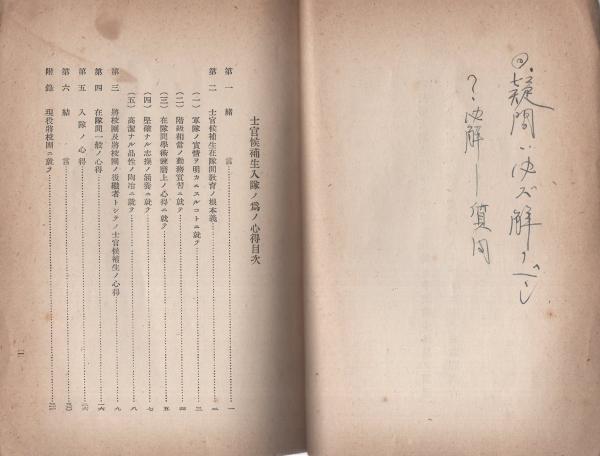 疑問ハ必ズ解クベシ
?・必解ー質問
士官候補生入隊ノ爲ノ心得目次
第一 緒言 一
第二 士官候補生在隊間教育ノ根本義 二
(一) 軍隊ノ實情ヲ明カニスルコトニ就テ 三
(二) 階級相當ノ勤務實習ニ就テ 四
(三) 在隊間學術練磨上ノ心得ニ就テ 五
(四) 堅確ナル志操ノ涵養ニ就テ 七
(五) 高潔ナル品性ノ陶冶ニ就テ 八
第三 將校團及將校團ノ後繼者トシテノ士官候補生ノ心得 九
第四 在隊間一般ノ心得
第五 入隊ノ心得
第六 結言
附錄 現役將校團ニ就テ